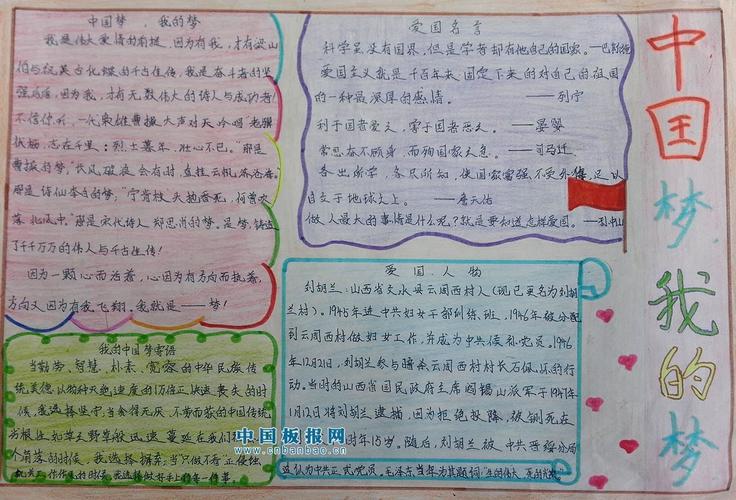 中国梦，我的梦
我是伟大爱情的前提，因为有我，才有梁山
伯与祝英台化蝶的千古佳传，我是奋斗者的坚
强后盾，因为我，才有无数伟大的诗人与成功者！
不信你听，一代枭雄曹操大声对天吟唱老骥
伏枥，志在千里；烈士暮年，壮心不已。那是
曹操的梦，“长风破浪会有时，直挂云帆济沧海。
那是诗仙李白的梦；“宁肯枝头抱香死，何曾吹
落北风中。”那是宋代诗人郑思肖的梦。是梦，铸造
了千千万万的伟人与千古佳传！
因为一颗心而活着，心因为有方向而执着，
方向又因为有我飞翔，我就是——梦！
我的中国梦寄语
当勤劳、智慧、朴素、宽容的中华民族传
统美德以物种灭绝速度的1万倍正快速丧失的时
候，我选择坚守；当贪得无厌、不劳而获的中国传统
劣根性如草生野草般迅速蔓延在我们
个角落的时候，我选择摒弃；当“只做不看”正侵蚀
的时候，我选择做好手上的每一件事。
爱国名言
科学虽没有国界，但是学者却有他自己的国家。——巴斯德
爱国主义就是千百年来固定下来的对自己的祖国
的一种最深厚的感情。——列宁
利于国者爱之，害于国者恶之。——晏婴
常思奋不顾身，而殉国家之急。——司马迁
各出所学，各尽所知，使国家富强不受外侮，足以
自立于地球之上。——詹天佑
做人最大的事情是什么呢？就是要知道怎样爱国。——孙中山
爱国人物
刘胡兰：山西省文水县云周西村人（现已更名为刘胡
兰村）。1945年进中共妇女干部训练班，1946年被分配
到云周西村做妇女工作，并成为中共候补党员。1946
年12月21日，刘胡兰参与暗杀云周西村村长石佩怀的行
动。当时的山西省国民政府主席阎锡山派军于1947年
1月12日将刘胡兰逮捕，因为拒绝投降，被铡死在
时年15岁。随后，刘胡兰被中共晋绥分局
追认为中共正式党员。毛泽东当年为其题词：“生的伟大，死的光荣”
中国梦，我的梦
中国板报网
www.cnbanbao.cn